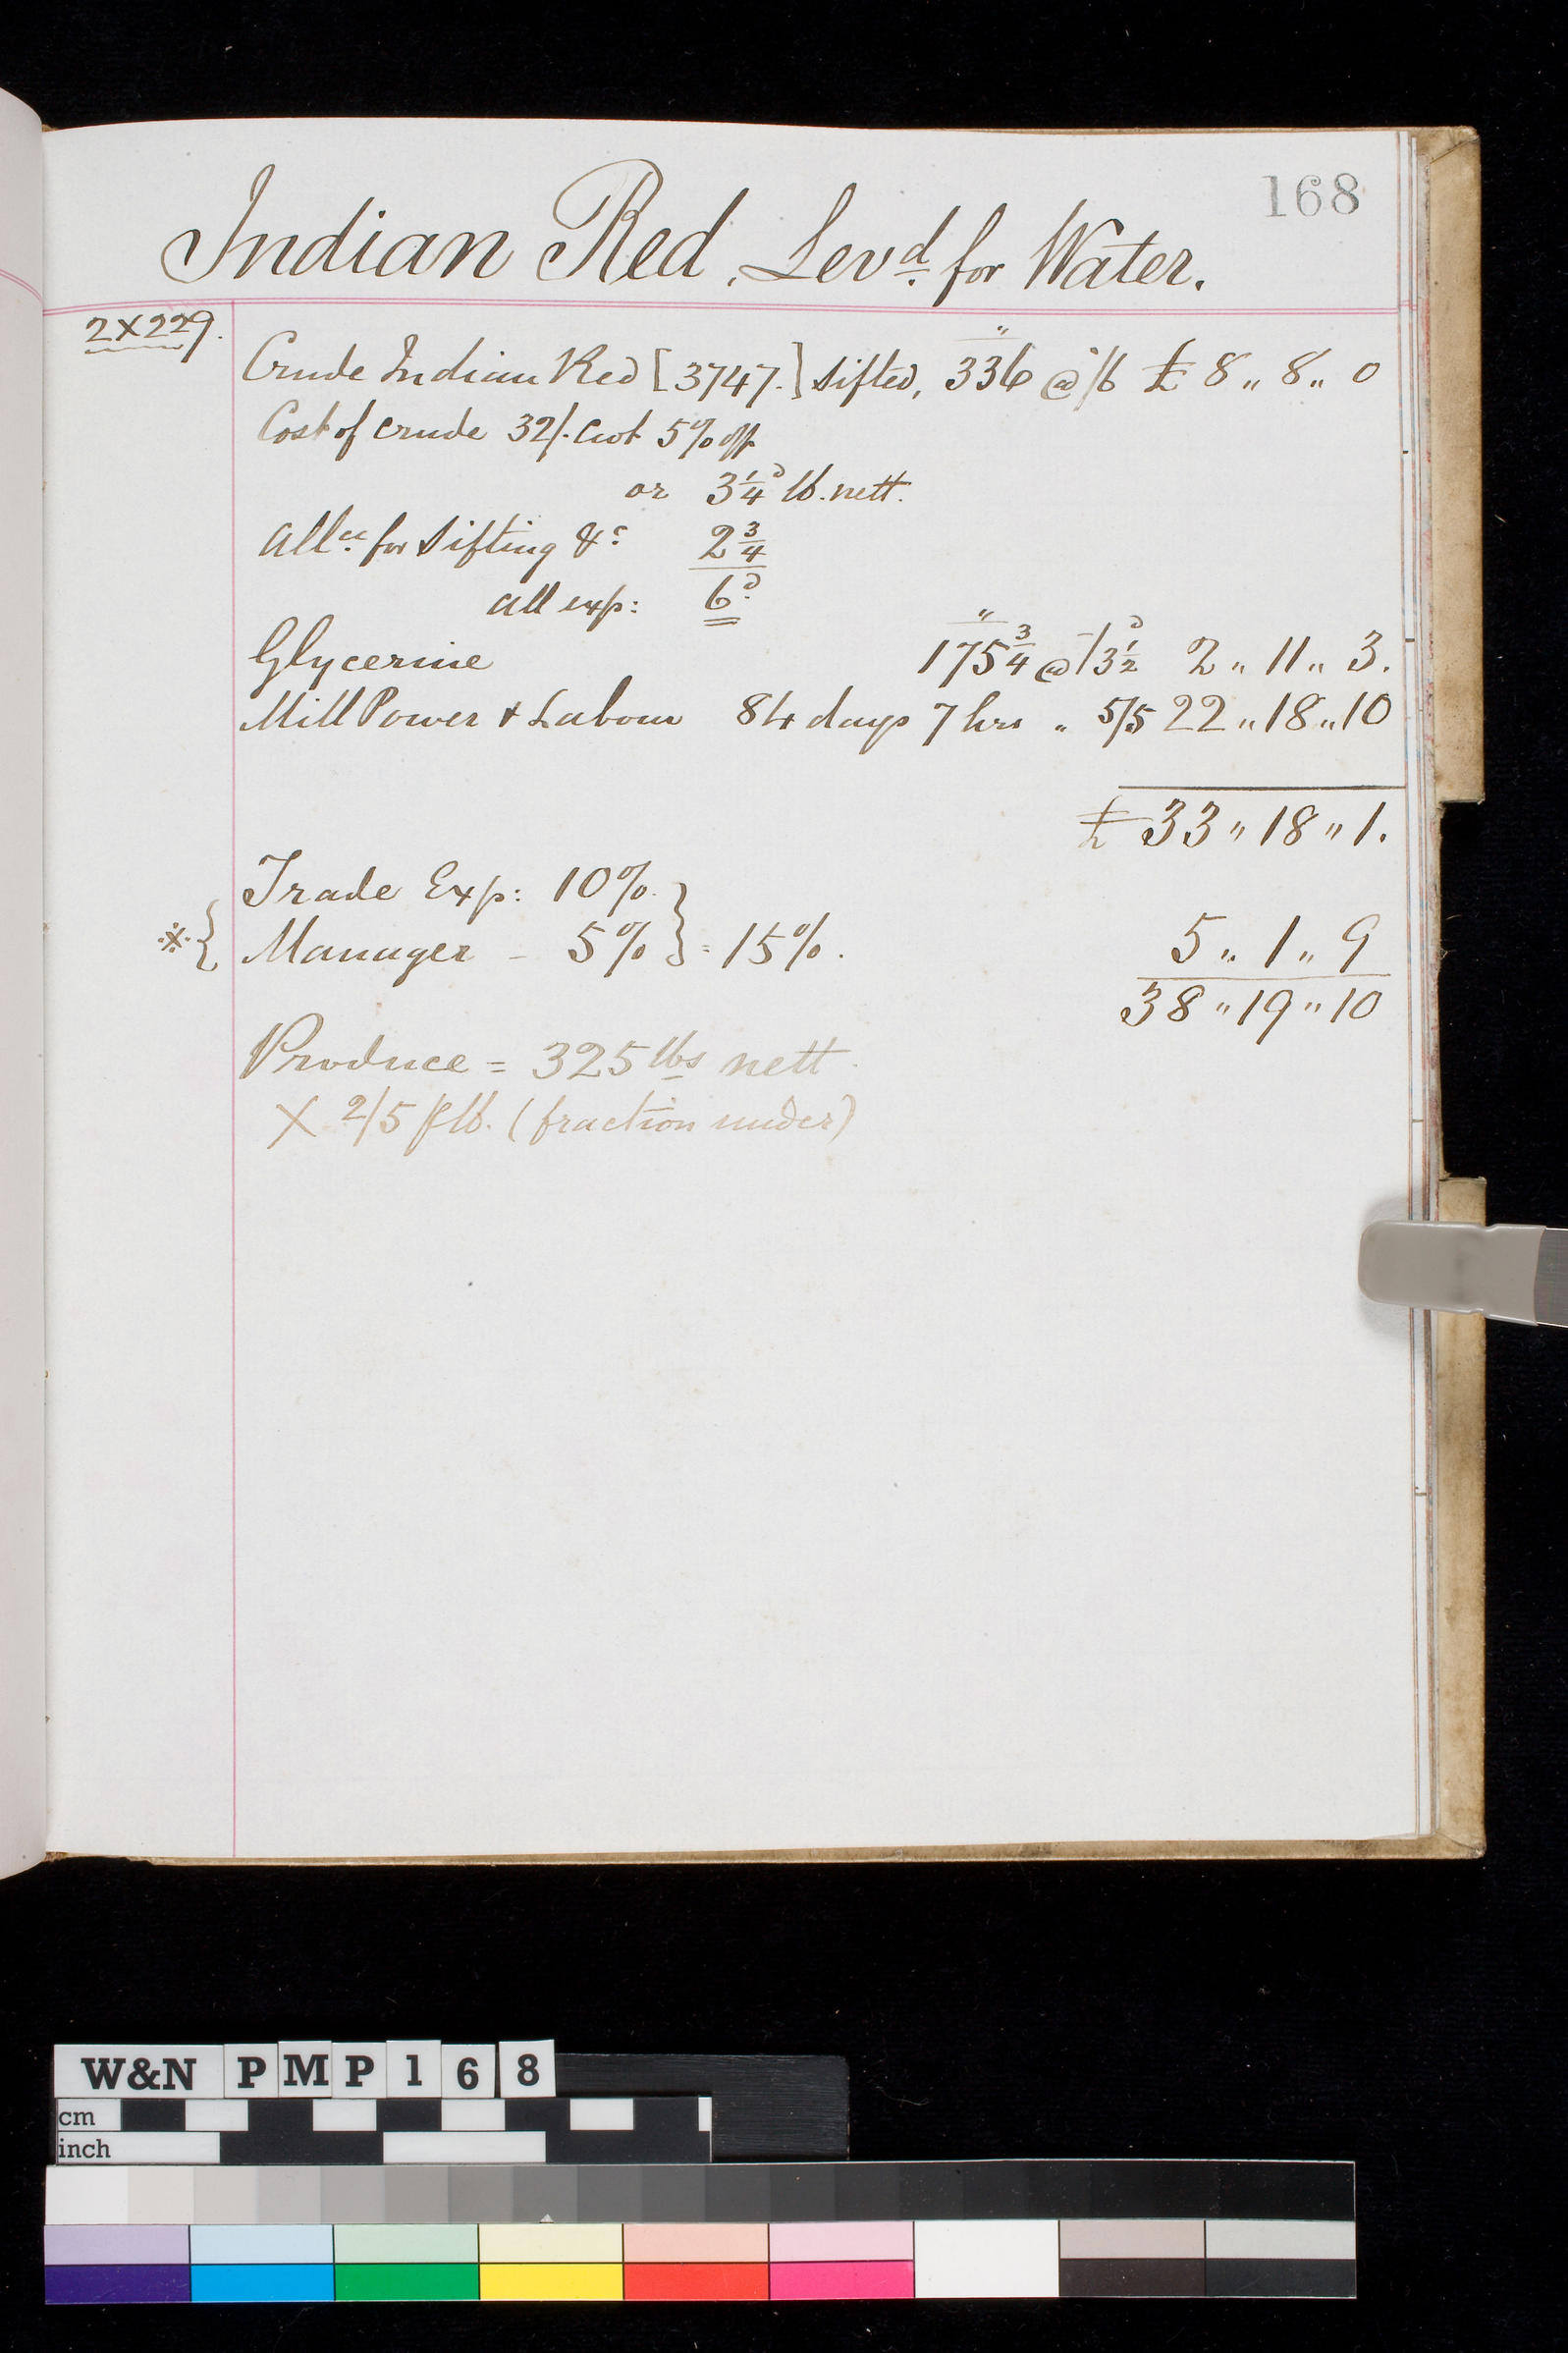 168
Indian Red, Lev^d. for Water.
2X229.
Crude Indian Red [3747.] sifted, 336 @ /6 £ 8 " 8 " 0
Cost of crude 32/. Cwt 5% off
or 3 1/4^d lb. nett.
All^ce. for Sifting &^c 2 3/4
all exp: 6^d
Glycerine 175 3/4 @ /3 1/2^d 2 " 11 " 3.
Mill Power & Labour 84 days 7 hrs " 5/5 22 " 18 " 10
£ 33 " 18 " 1.
Trade Exp: 10%.
※{ Manager - 5% } = 15%. 5 " 1 " 9
38 " 19 " 10
Produce = 325 lbs nett.
X 2/5 ℔ lb. (fraction under)
W&N PMP168
cm
inch